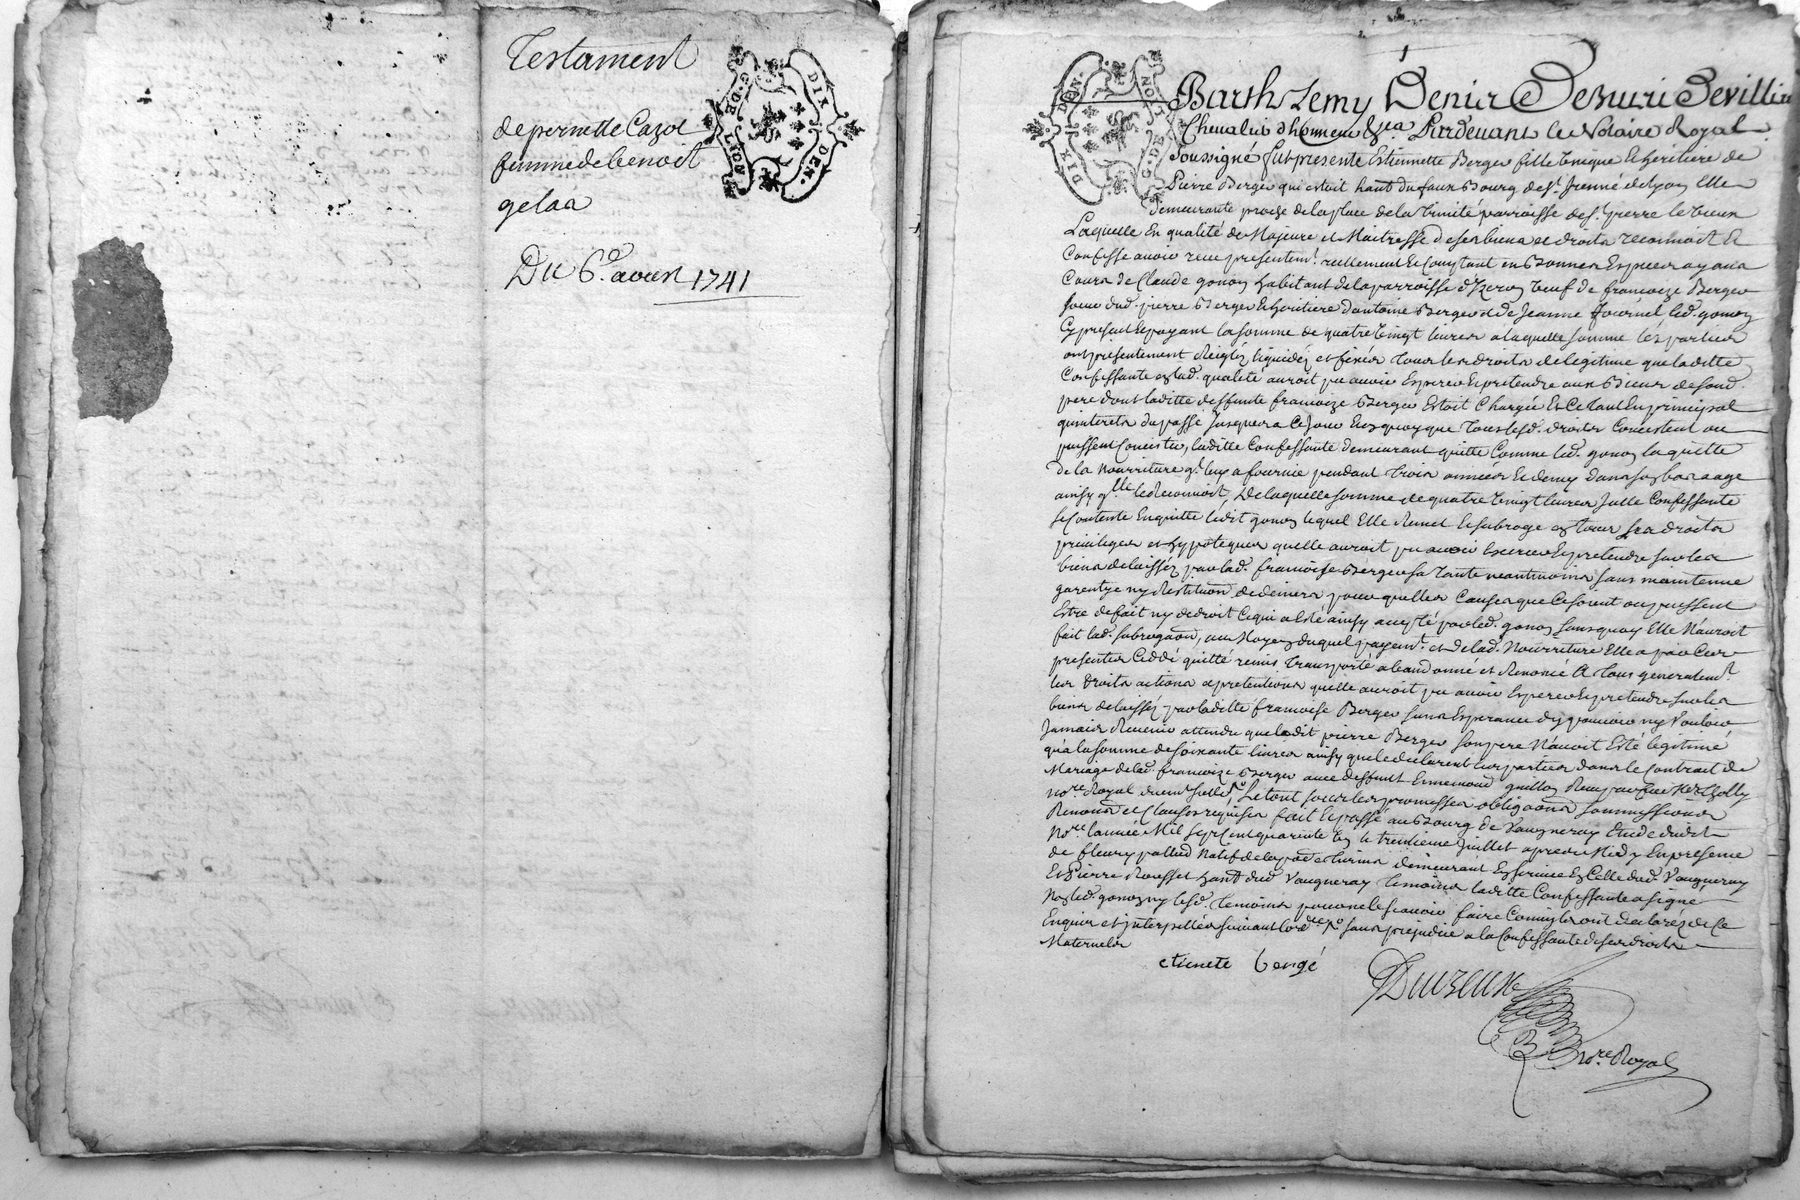 Testament
de pernette Cazot
femme de benoit
gelaa
Du 6.e aoust 1741
G. DE LION
DIX DEN.
Barthelemy Denir Dezuri Sevillin
Chevalier d'honneur &ca Pardevant le Notaire Royal
Soussigné fut presente Estiennette Berger fille unique et heritiere de
Pierre Berger qui estoit hant du faux Bourg de St Irenné de Lyon Elle
demeurante proche de la place de la trinité parroisse de St pierre le vieux
Laquelle En qualité de Majeure et Maitresse de ses biens et droits reconnoit et
Confesse avoir receu presentemt reellement et Comptant en Bonnes Especes ayans
Cours de Claude gonon habitant de la parroisse d'Izeron veuf de francoize Berger
soeur dud. pierre Berger et heritiere d'antoine Berger et de Jeanne fournel led. gonon
Cy present et payant la somme de quatre vingt livres a laquelle somme les parties
ont presentement Reiglés, liquidez et fixéz tous les droits de legitime que laditte
Confessante esd. qualité auroit pu avoir Esperer et pretendre aux Biens de sond.
pere dont laditte deffunte francoize Berger Estoit Chargée Et Ce tant En principal
qu'interets du passé Jusques a Ce jour En quoy que tous lesd. droits Concistent ou
puissent Concister, laditte Confessante demeurant quitte Comme led. gonon la quitte
de la nourriture q'il luy a fournie pendant trois années et demy dans son bas aage
ainsy q'lle le Reconnoit, De laquelle somme de quatre vingt livres Jcelle Confessante
se Contente En quitte ledit gonon lequel Elle Remet et subroge en tous ses droits
privileges et hypoteques quelle auroit pu avoir Exercer et pretendre sur les
biens delaissez par lad. francoise Berger sa tante neantmoins sans maintenue
garentye ny Restitution de deniers pour quelles Causes que Ce soient ou puissent
Estre de fait ny de droit Ce qui a Esté ainsy accepté par led. gonon sans quoy Elle N'auroit
fait lad. subrogaon, au Moyen duquel payemt et de lad. Nourriture Elle a par Ces
presentes Ceddé quitté remis transporté abandonné et Renoncé A tous generalemt
les droits actions et pretentions quelle auroit pu avoir Esperer et pretendre sur les
biens delaissez par laditte francoise Berger sans Esperance d'y pouvoir ny Vouloir
Jamais Revenir attendu que ledit pierre Berger son pere N'avoit Esté legitimé
qu'a la somme de soixante livres ainsy que le declarent les parties dans le Contrait de
Mariage de lad. francoize Berger avec deffunt Ennemond guillon Receu par
nore Royal Le tout sous les promesses obligaons soummissions
Renonons et Clauses requises fait Et passé au Bourg de Vaugneray Etude dudit
Nore l'année Mil sept Cent quarente Un le trentieme Juillet apres Midy En presence
de fleury pallud Natif de demeurant En service En Celle dud. Vaugneray
Et Pierre Rousset hant dud Vaugneray temoins laditte Confessante a signé
Non led. gonon ny lesd. temoins pour ne le scavoir faire Comm'ils ont declaréz de Ce
Enquis et interpellés suivant l'ord. sans prejudice a la Confessante de ses droits
Maternels
etienete bergé
Duizeux
Nore Royal